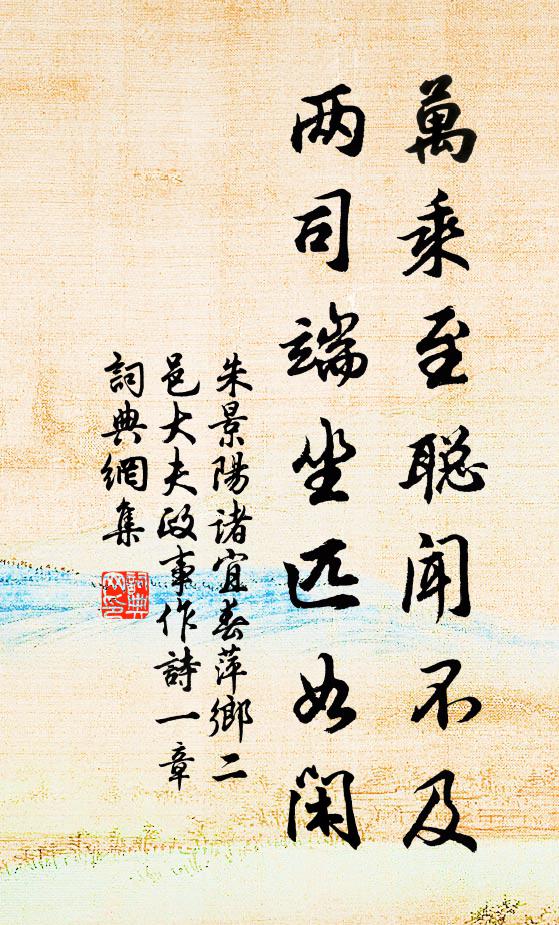 萬乘至聡聞不及
两司端坐匹如閑
朱景陽諸宜春萍鄉二
邑大夫政事作詩一章
詞典網集
詞典
网印